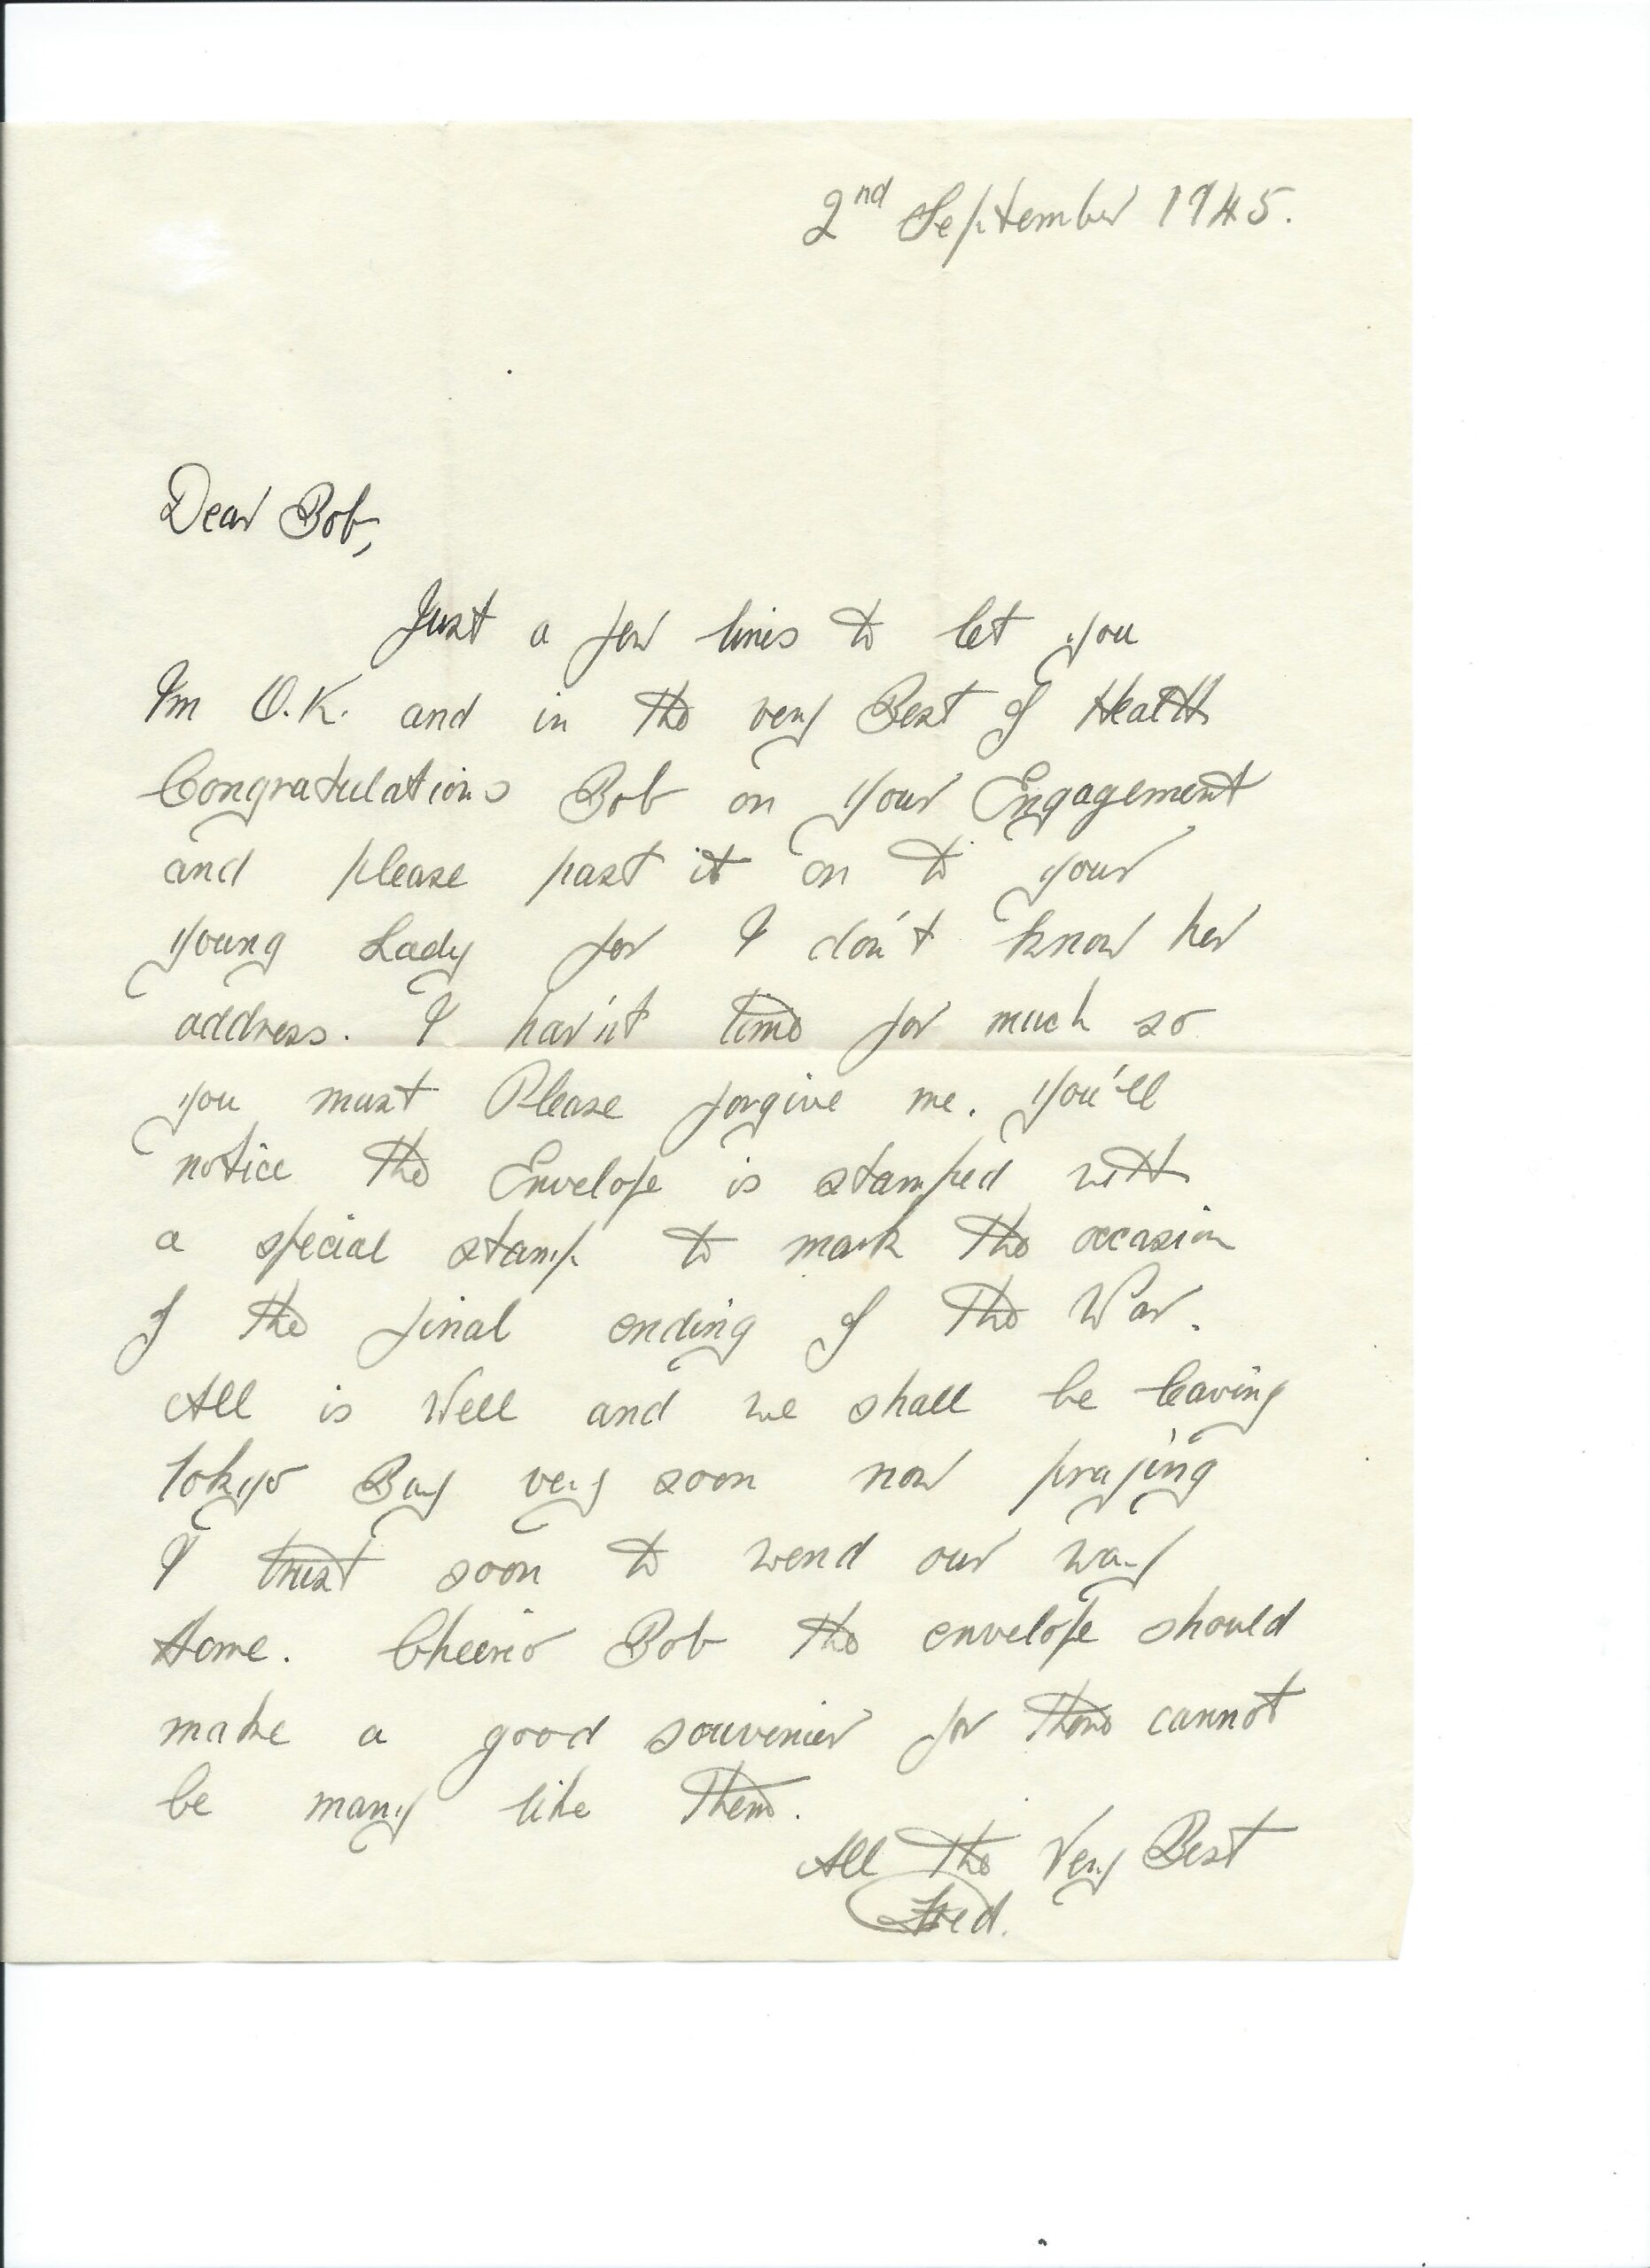 2nd September 1945.
Dear Bob,
Just a few lines to let you
I'm O.K. and in the very Best of Health
Congratulations Bob on your Engagement
and please past it on to your
young Lady for I don't know her
address. I hav'nt time for much so
you must Please forgive me. You'll
notice the Envelope is stamped with
a special stamp to mark the occasion
of the final ending of the War.
All is Well and we shall be leaving
Tokyo Bay very soon now praying
I trust soon to wend our way
Home. Cheerio Bob the envelope should
make a good souvenier for there cannot
be many like them.
All the Very Best
Fred.